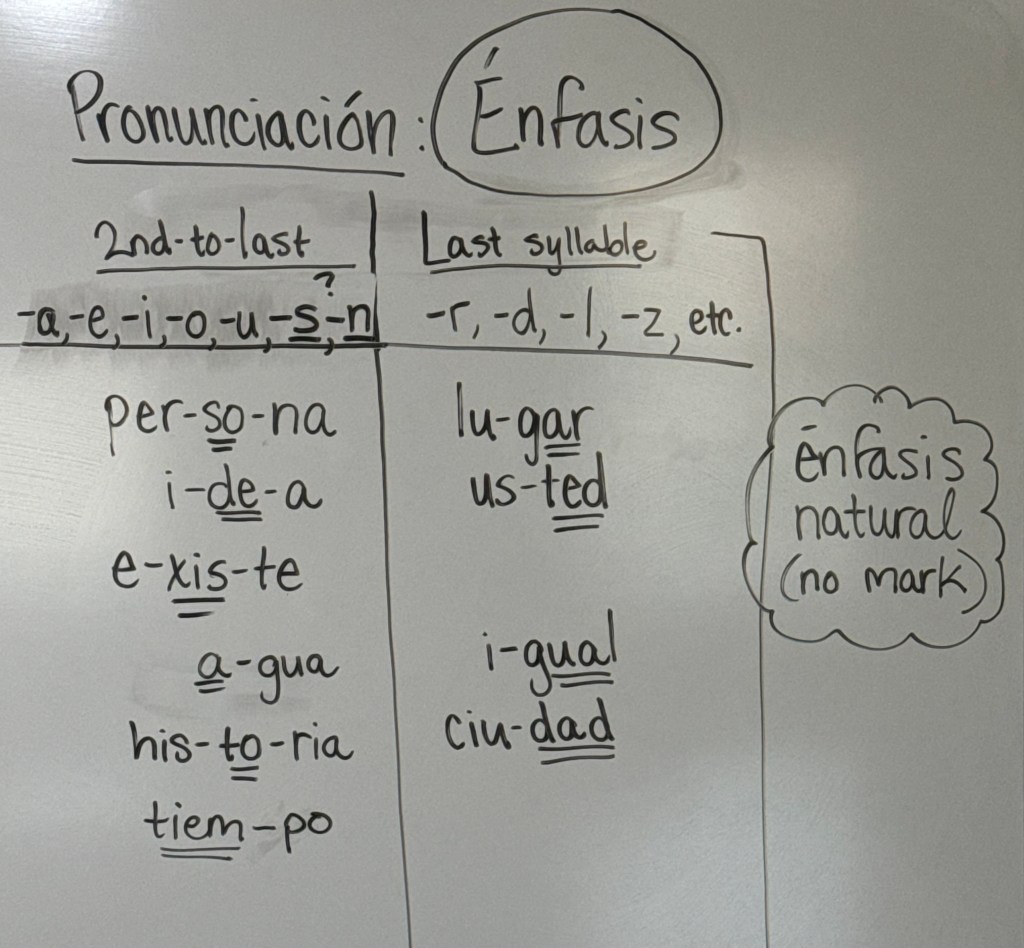 Pronunciación: Énfasis
2nd-to-last
?
-a, -e, -i, -o, -u, -s, -n
per-so-na
i-de-a
e-xis-te
a-gua
his-to-ria
tiem-po
Last syllable
-r, -d, -l, -z, etc.
lu-gar
us-ted
i-gual
ciu-dad
énfasis
natural
(no mark)